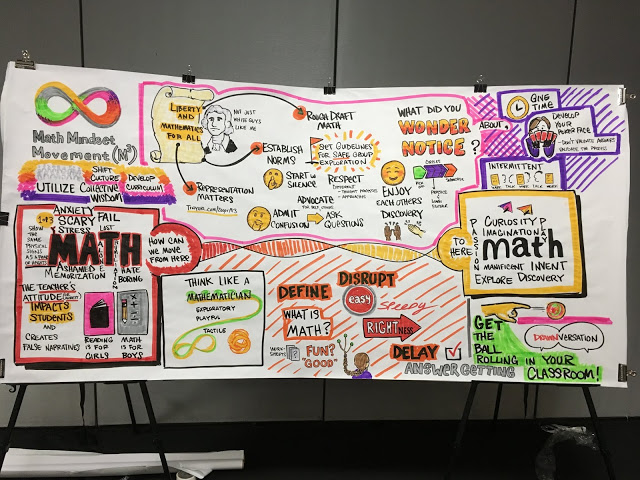 Math Mindset
Movement (M³)
SHIFT
CULTURE
DEVELOP
UTILIZE Collective CURRICULUM
WISDOM
LIBERTY
AND
MATHEMATICS
FOR ALL
NOT JUST
WHITE GUYS
LIKE ME
ROUGH DRAFT
MATH
ESTABLISH
NORMS
REPRESENTATION
MATTERS
SET GUIDELINES
FOR SAFE GROUP
EXPLORATION
START w/
SILENCE
RESPECT
DIFFERENT
- THOUGHT PROCESSES
- APPROACHES
ADMIT
CONFUSION
ADVOCATE
ASK
QUESTIONS
ENJOY
EACH OTHERS
DISCOVERY
WHAT DID YOU
WONDER
NOTICE?
ABOUT
GIVING
TIME
DEVELOP
YOUR
POKER FACE
- DON'T VALIDATE ANSWERS
VALIDATE THE PROCESS
INTERMITTENT
TALK
WORK
TALK
WORK
1 of 3
ANXIETY
SCARY FAIL
STRESS LOST
SHOW
THE
SAME
PHYSICAL
SIGNS
MATH
ASHAMED
HATE
MEMORIZATION BORING
THE TEACHER'S
ATTITUDE
IMPACTS
STUDENTS
AND
CREATES
FALSE NARRATIVES
READING
IS FOR
GIRLS
MATH
IS FOR
BOYS
HOW CAN
WE MOVE
FROM HERE
TO
HERE?
THINK LIKE A
MATHEMATICIAN
EXPLORATORY
PLAYFUL
TACTILE
DEFINE
WHAT IS
MATH?
WORK-
SHEETS
FUN?
GOOD
DISRUPT
easy
Speedy
RIGHTNESS
DELAY
ANSWER GETTING
PASSION
CURIOSITY
IMAGINATION
math
MANIFICENT INVENT
EXPLORE DISCOVERY
GET
THE
BALL
ROLLING IN YOUR
CLASSROOM!
DRAWNVERSATION